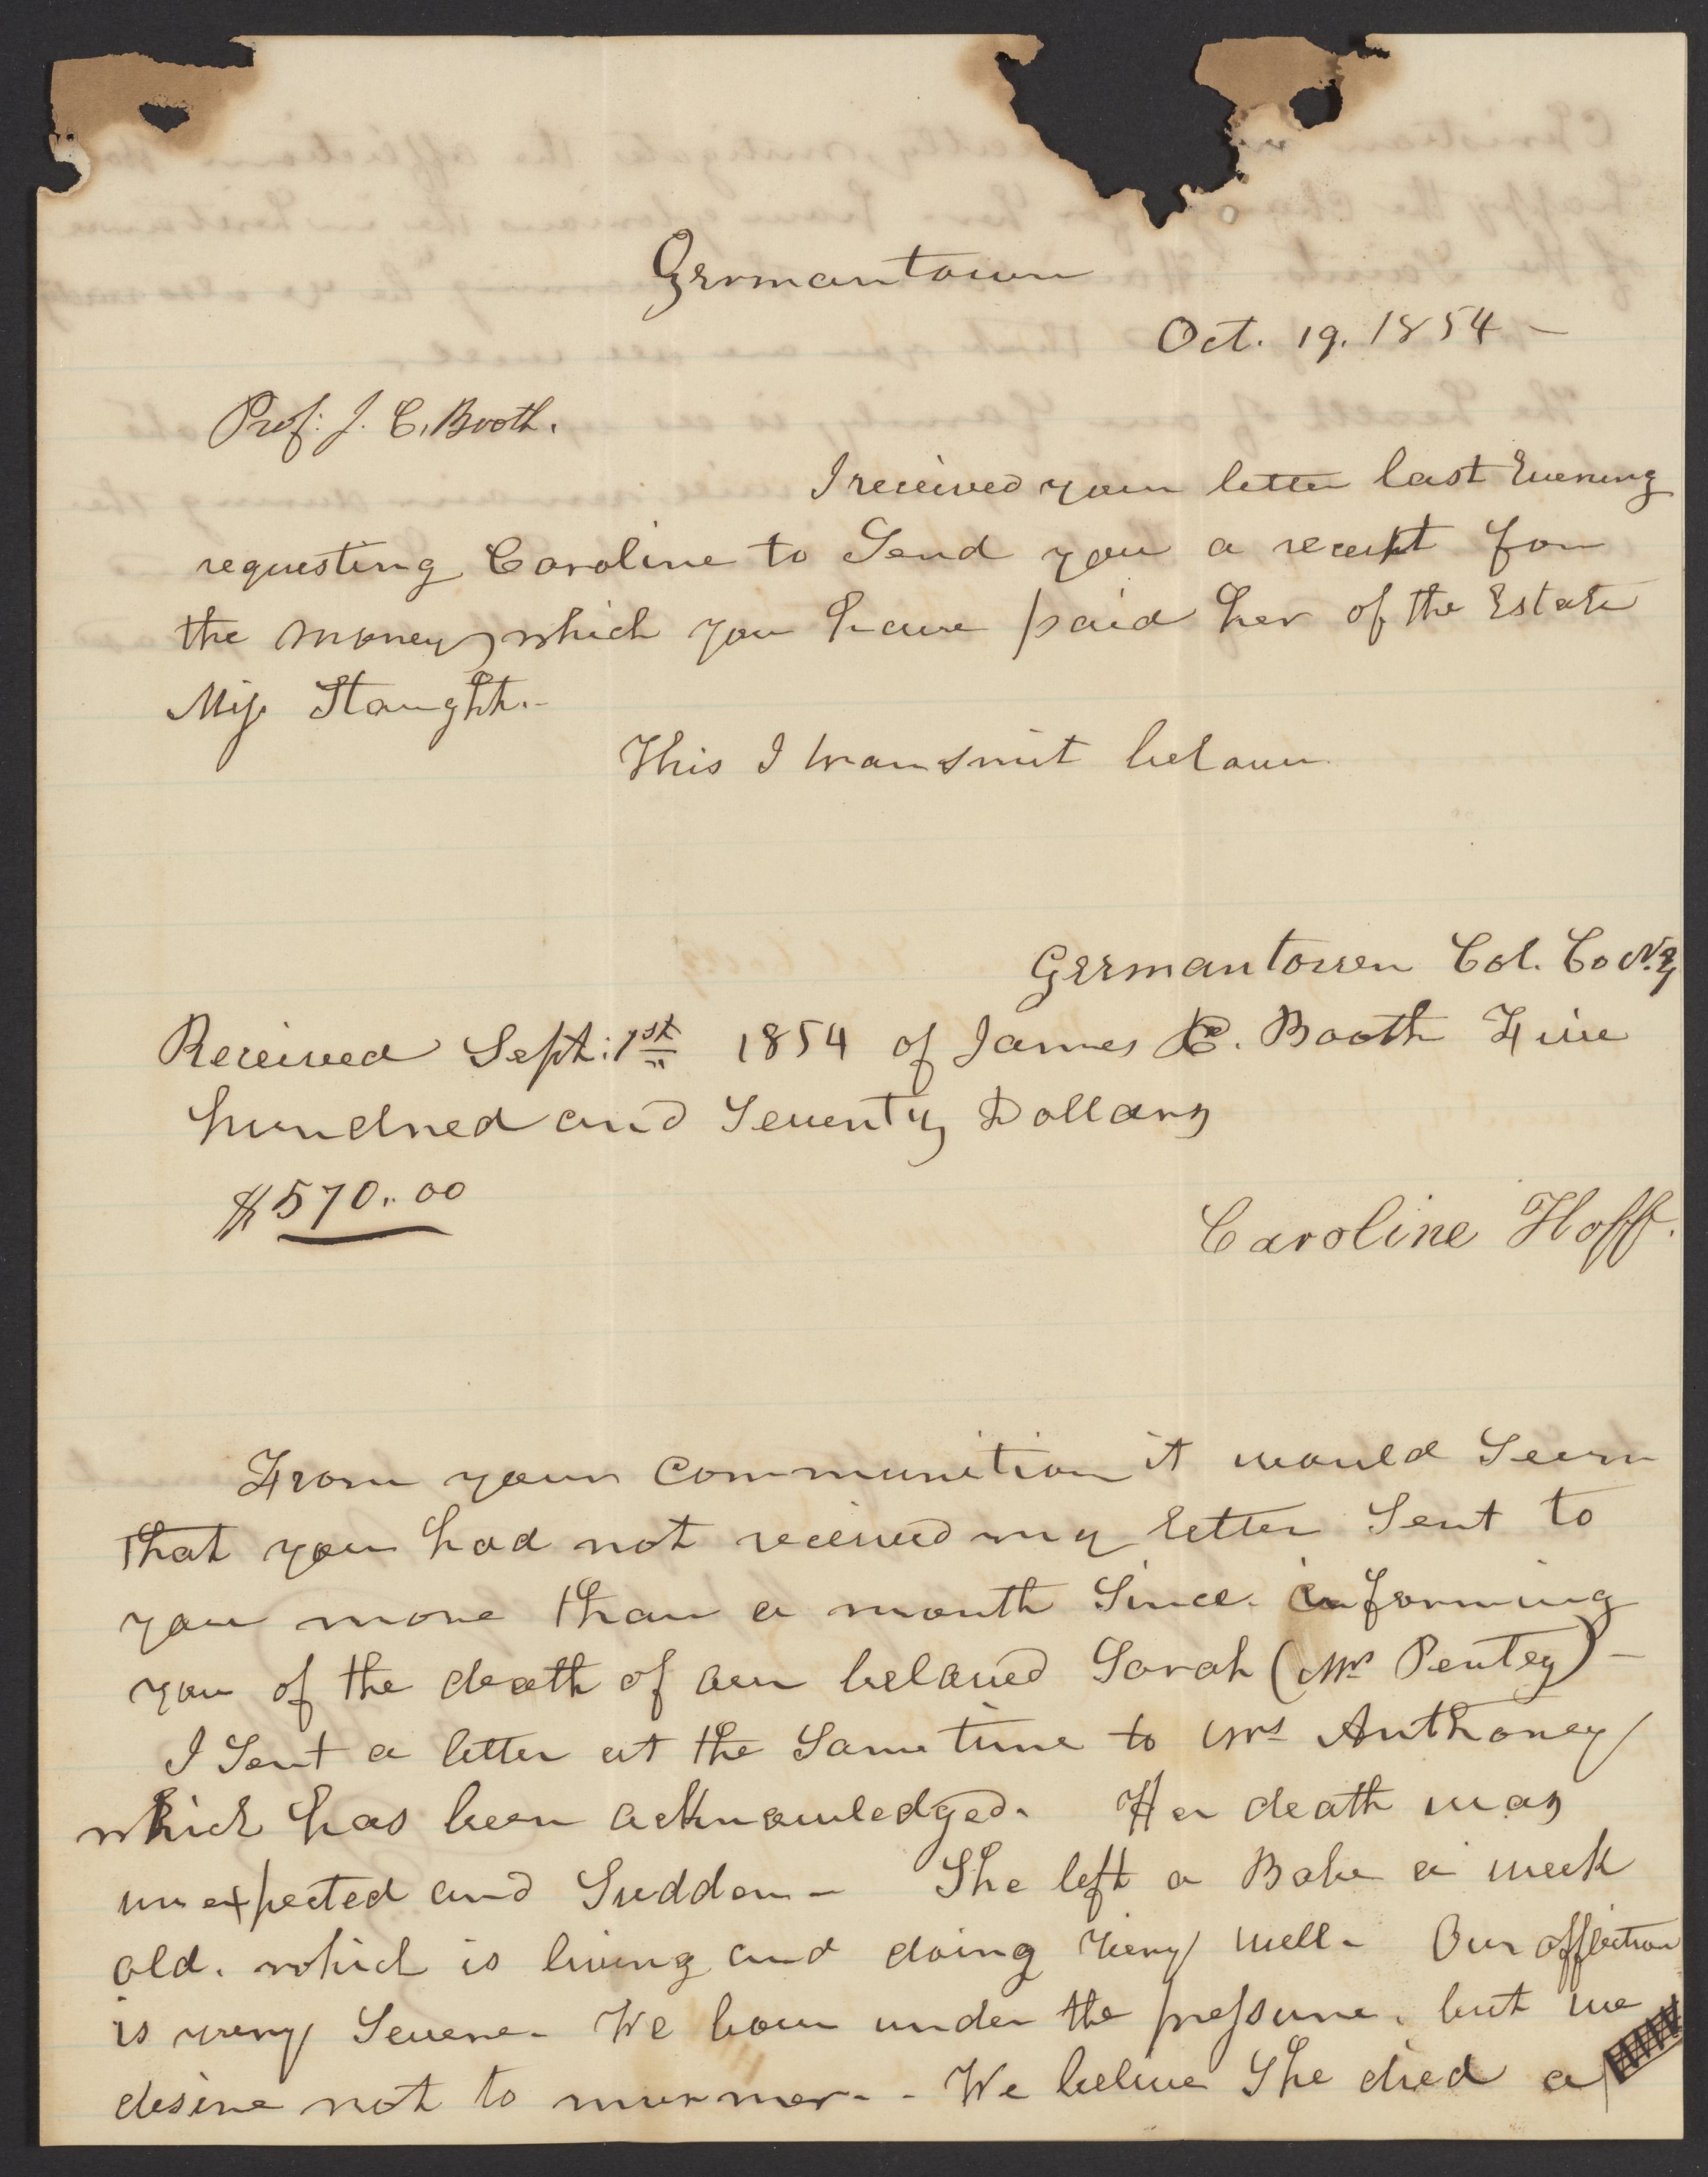 Germantown
Oct. 19. 1854 -
Prof. J. C. Booth.
I received your letter last Evening
requesting Caroline to Send you a receipt for
the money which you have paid her of the Estate
Miss Staught.-
This I transmit below
Germantown Col. Co N.Y
Received Sept: 1st 1854 of James C. Booth Five
hundred and Seventy Dollars
$570.. 00
Caroline Hoff.
From your communition it would Seem
that you had not received my letter Sent to
you more than a month Since. informing
you of the death of our beloved Sarah (Mrs Pentey) -
I Sent a letter at the Same time to Mrs Anthoney
which has been acknowledged. Her death was
unexpected and Sudden - She left a Babe a week
old. which is living and doing very well - Our affliction
is very Severe - We bow under the pressure. but we
desire not to murmer - - We believe She died a